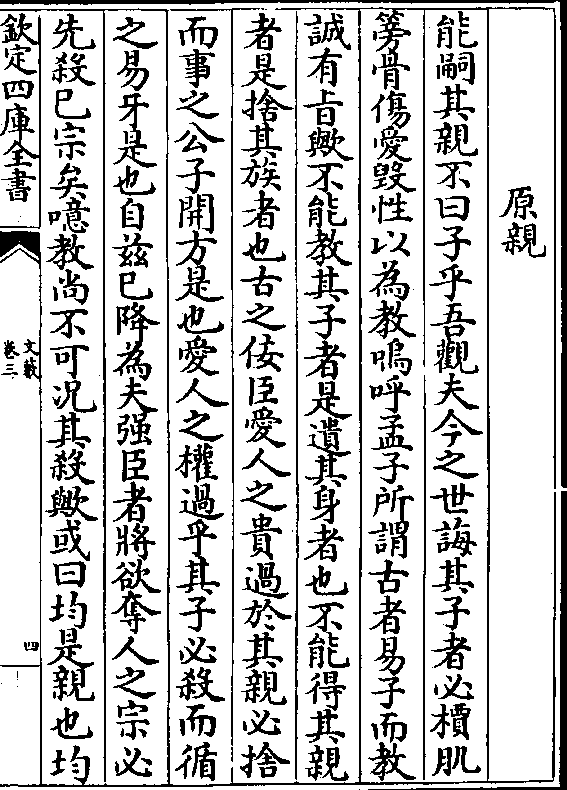 原親
能嗣其親不曰子乎吾觀夫今之世誨其子者必櫝肌
篣骨傷愛毀性以為教嗚呼孟子所謂古者易子而教
誠有㫖歟不能教其子者是遺其身者也不能得其親
者是捨其族者也古之佞臣愛人之貴過於其親必捨
而事之公子開方是也愛人之權過乎其子必殺而循
之易牙是也自兹已降為夫强臣者將欲奪人之宗必
先殺已宗矣噫教尚不可况其殺歟或曰均是親也均
欽定四庫全書
文藪
卷三
四